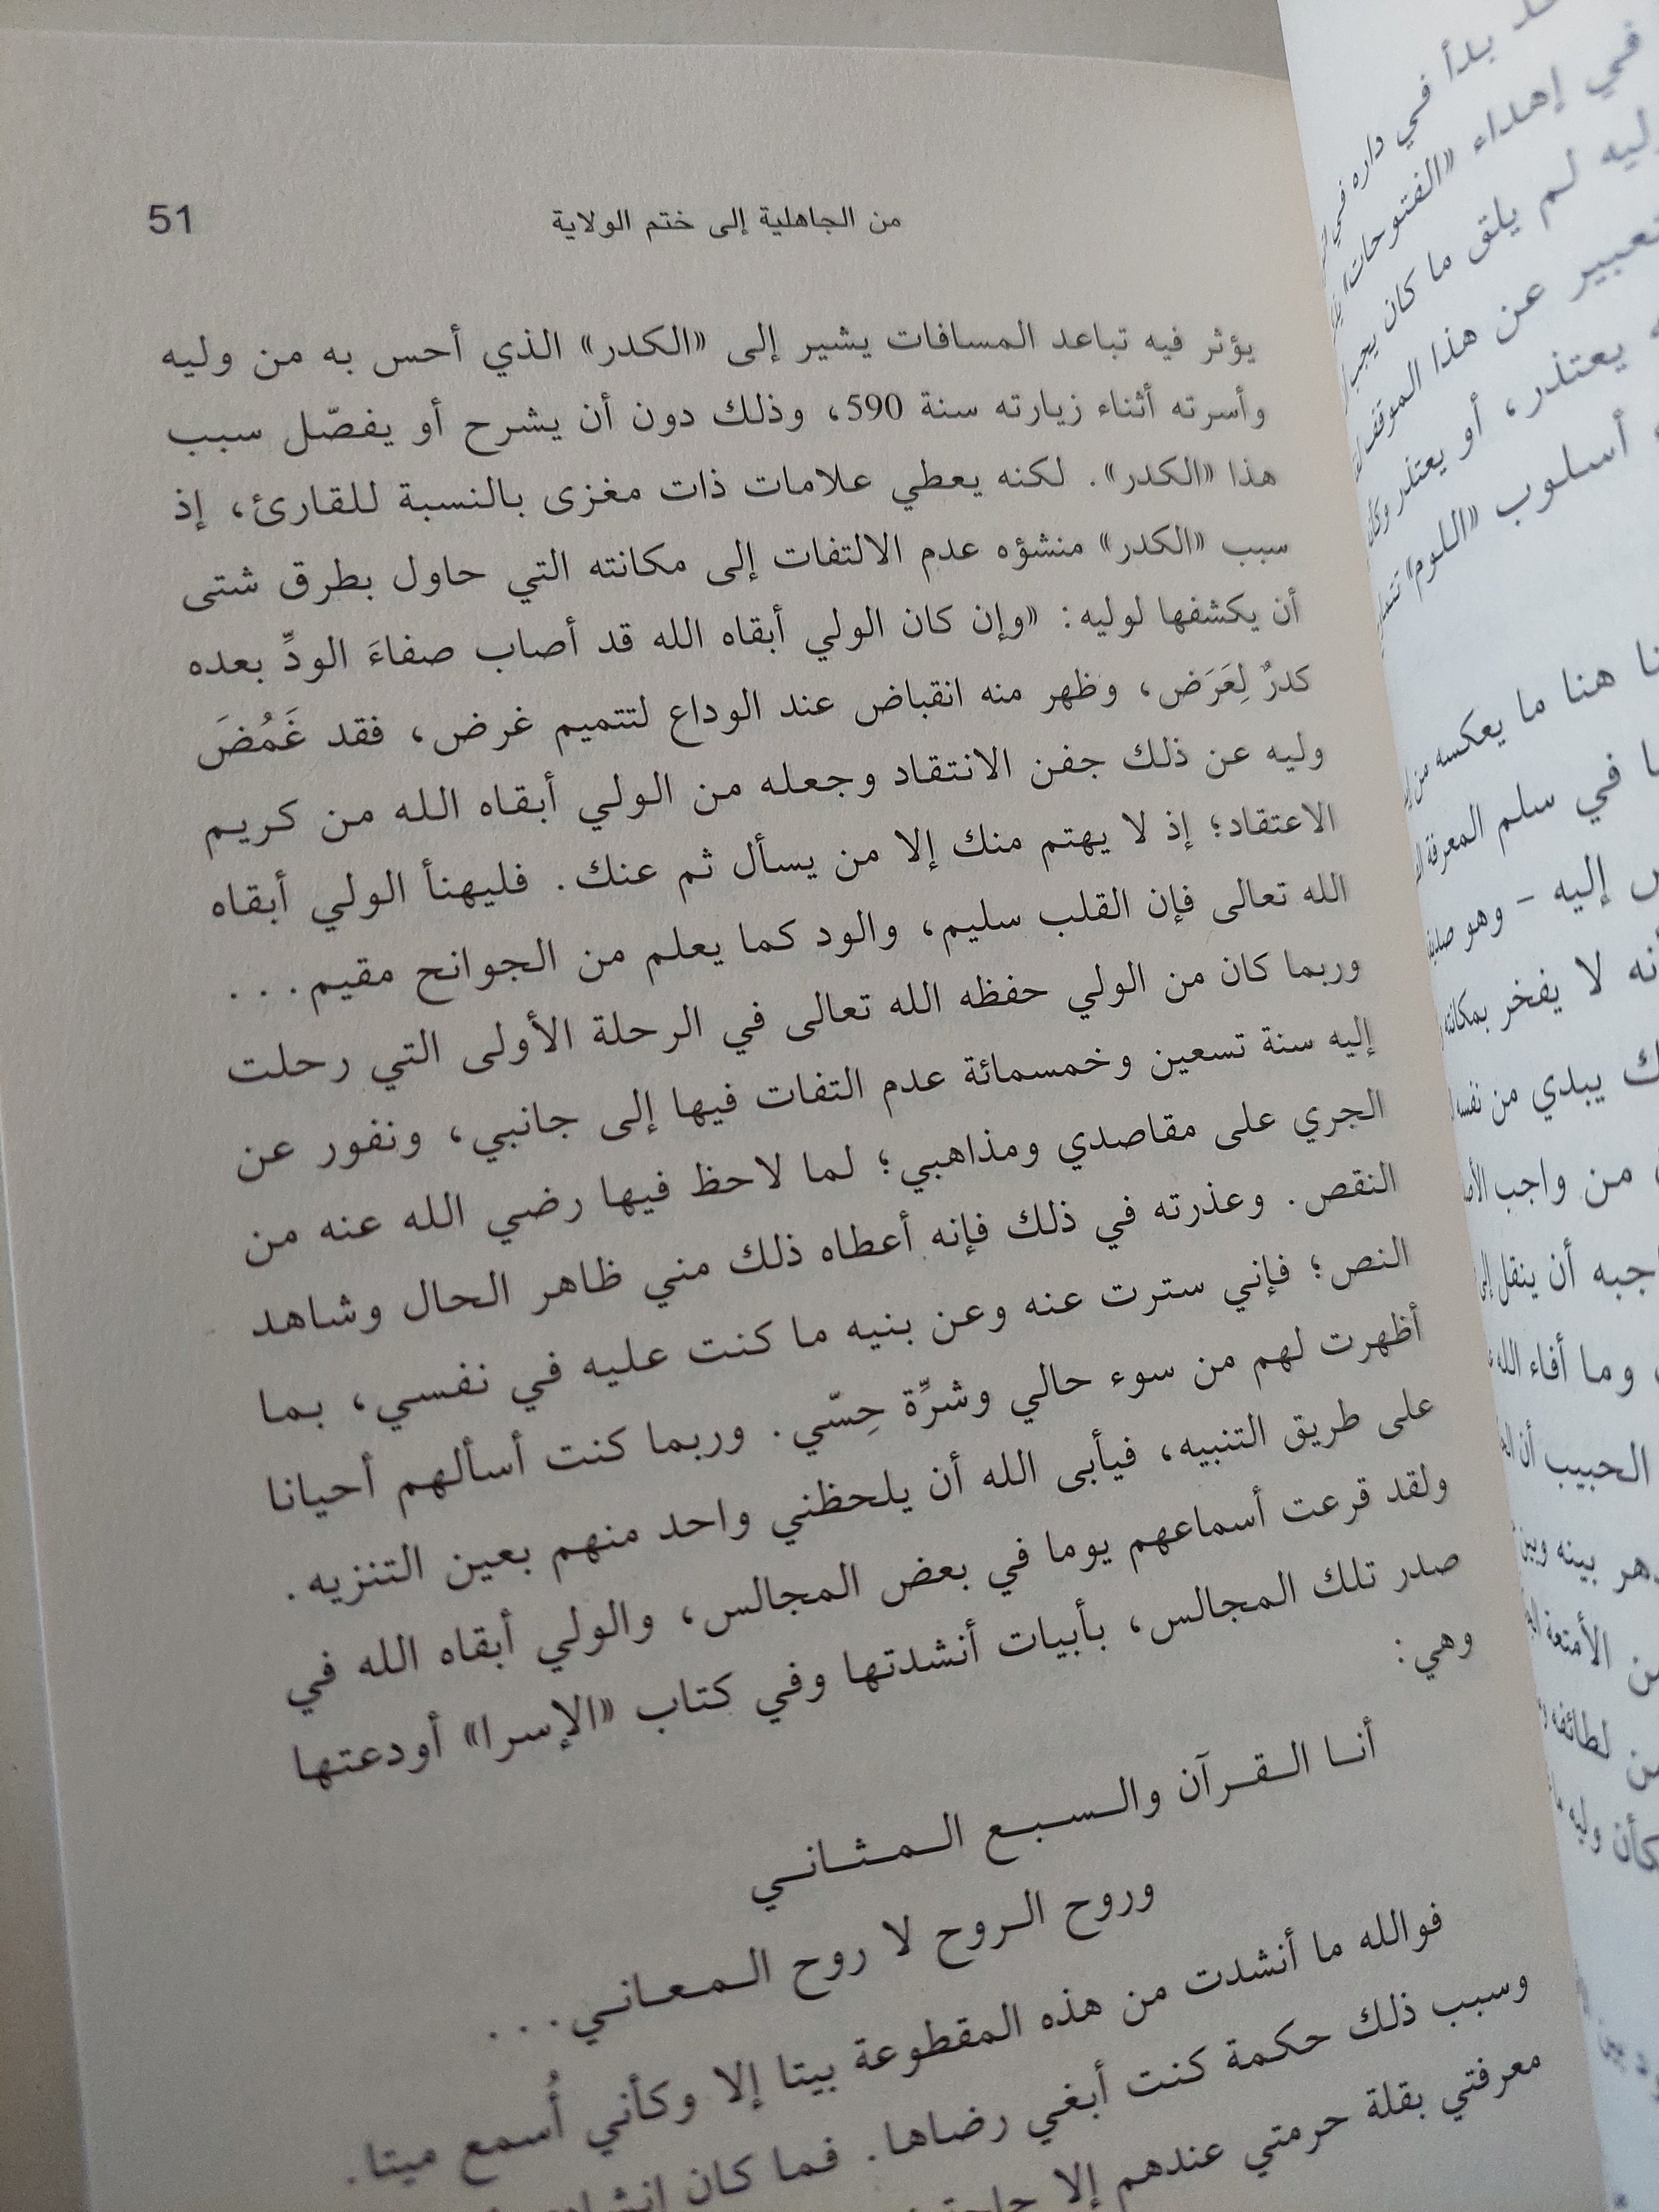 من الجاهلية إلى ختم الولاية
51
يؤثر فيه تباعد المسافات يشير إلى «الكدر» الذي أحس به من وليه
وأسرته أثناء زيارته سنة 590، وذلك دون أن يشرح أو يفصّل سبب
هذا «الكدر». لكنه يعطي علامات ذات مغزى بالنسبة للقارئ، إذ
سبب «الكدر» منشؤه عدم الالتفات إلى مكانته التي حاول بطرق شتى
أن يكشفها لوليه: «وإن كان الولي أبقاه الله قد أصاب صفاءَ الودِّ بعده
كدرٌ لِعَرَض، وظهر منه انقباض عند الوداع لتتميم غرض، فقد غَمُضَ
وليه عن ذلك جفن الانتقاد وجعله من الولي أبقاه الله من كريم
الاعتقاد؛ إذ لا يهتم منك إلا من يسأل ثم عنك. فليهنأ الولي أبقاه
الله تعالى فإن القلب سليم، والود كما يعلم من الجوانح مقيم...
وربما كان من الولي حفظه الله تعالى في الرحلة الأولى التي رحلت
إليه سنة تسعين وخمسمائة عدم التفات فيها إلى جانبي، ونفور عن
الجري على مقاصدي ومذاهبي؛ لما لاحظ فيها رضي الله عنه من
النقص. وعذرته في ذلك فإنه أعطاه ذلك مني ظاهر الحال وشاهد
النص؛ فإني سترت عنه وعن بنيه ما كنت عليه في نفسي، بما
أظهرت لهم من سوء حالي وشرِّة حِسّي. وربما كنت أسألهم أحيانا
على طريق التنبيه، فيأبى الله أن يلحظني واحد منهم بعين التنزيه.
ولقد قرعت أسماعهم يوما في بعض المجالس، والولي أبقاه الله في
صدر تلك المجالس، بأبيات أنشدتها وفي كتاب «الإسرا» أودعتها
وهي:
أنا القرآن والسبع المثاني
وروح الروح لا روح المعاني...
فوالله ما أنشدت من هذه المقطوعة بيتا إلا وكأني أُسمع ميتا.
وسبب ذلك حكمة كنت أبغي رضاها. فما كان
معرفتي بقلة حرمتي عندهم إلا
بدأ في داره في
في إهداء «الفتوحات»
لم يلق ما كان يجب
عن هذا الموقف
يعتذر، أو يعتذر وكأن
أسلوب «اللوم»
هنا ما يعكسه من
في سلم المعرفة
إليه - وهو
لا يفخر بمكانته
يبدي من نفسه
من واجب
أن ينقل إلى
وما أفاء الله
الحبيب أن
بينه وبين
الأمتعة
لطائفه
وليه